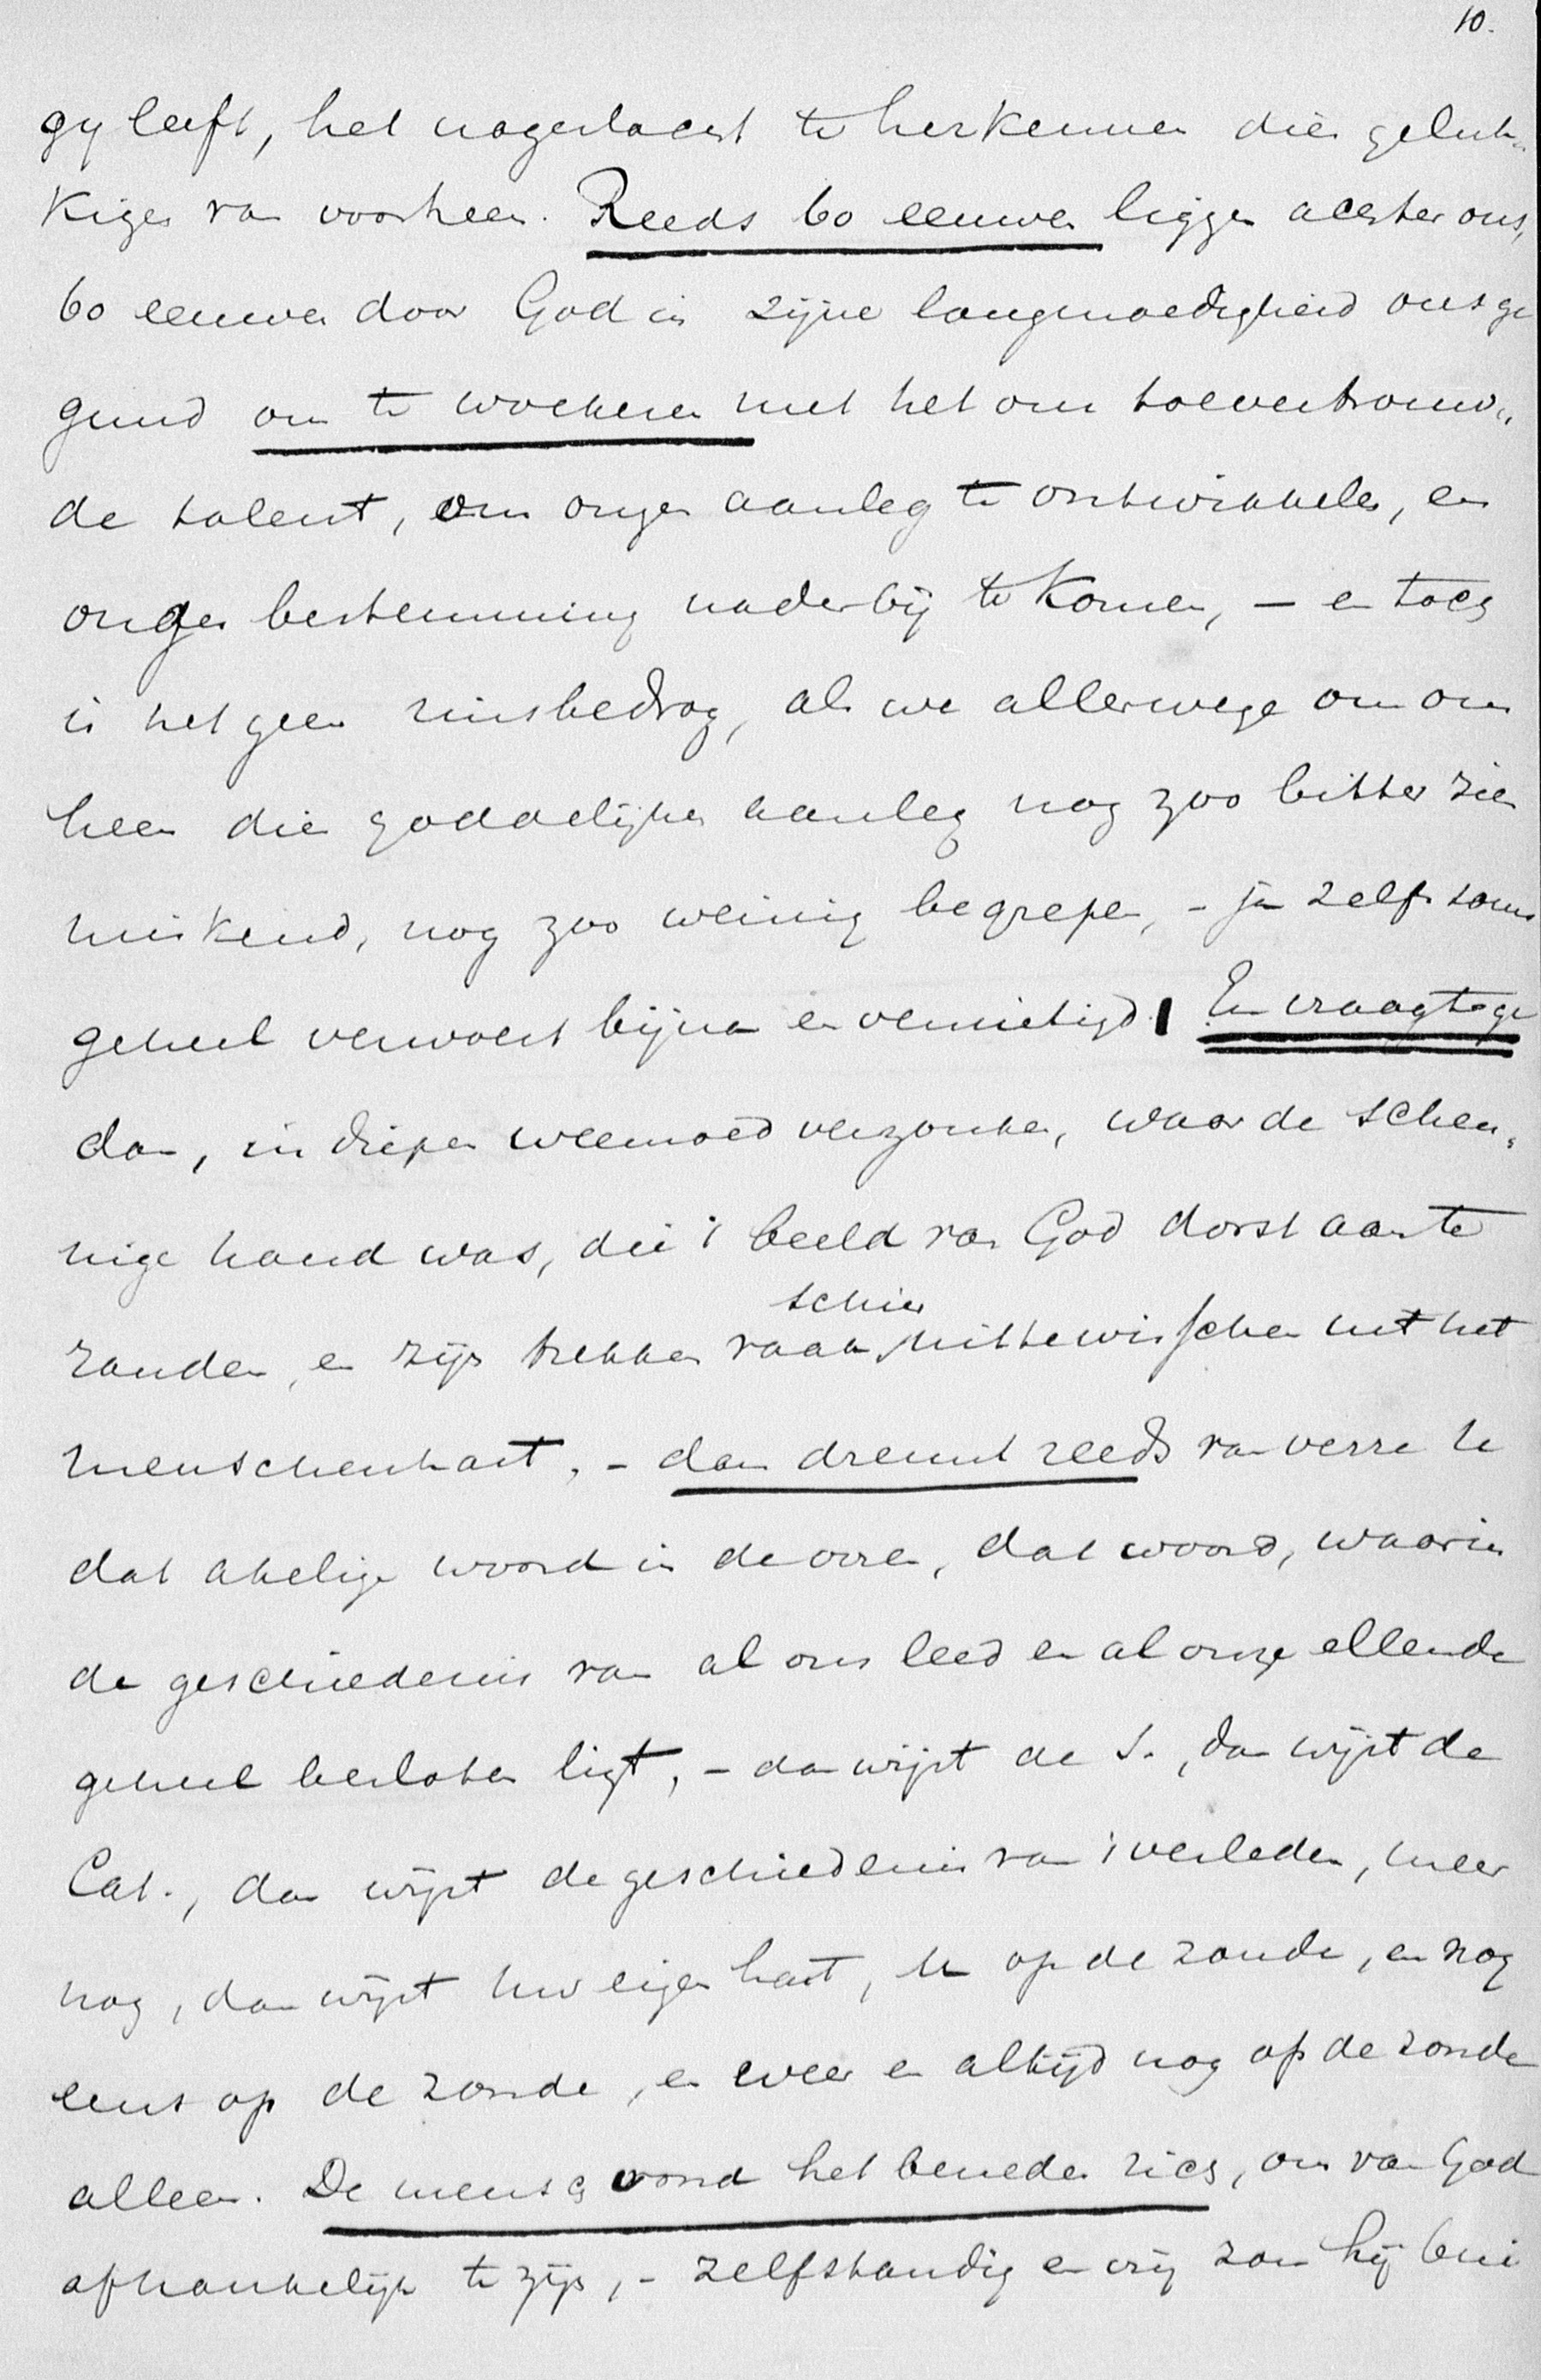 10.
gij leeft, het nageslacht te herkennen dier geluk„
kigen van voorheen. Reeds 60 eeuwen liggen achter ons,
60 eeuwen door God in zijne langmoedigheid ons ge
gund om te woekeren met het ons toevertrouw„
de talent, om onzen aanleg te ontwikkelen, en
onze bestemming naderbij te komen, – en toch
is het geen zinsbedrog, als we allerwege om ons
heen dien goddelijken aanleg nog zoo bitter zien
miskend, nog zoo weinig begrepen, – ja zelfs soms
geheel verwoest bijna en vernietigd. En vraagt ge
dan, in diepen weemoed verzonken, waar de schen„
nige hand was, die 't beeld van God dorst aan te
randen, en zijn trekken vaak
schier
uittewisschen uit het
menschenhart, – dan dreunt reeds van verre u
dat akelige woord in de ooren, dat woord, waarin
de geschiedenis van al ons leed en al onze ellende
geheel besloten ligt, – dan wijst de S., dan wijst de
Cat., dan wijst de geschiedenis van 't verleden, meer
nog, dan wijst uw eigen hart, u op de zonde, en nog
eens op de zonde, en weer en altijd nog op de zonde
alleen. De mensch vond het beneden zich, om van God
afhankelijk te zijn, – zelfstandig en vrij zou hij bui